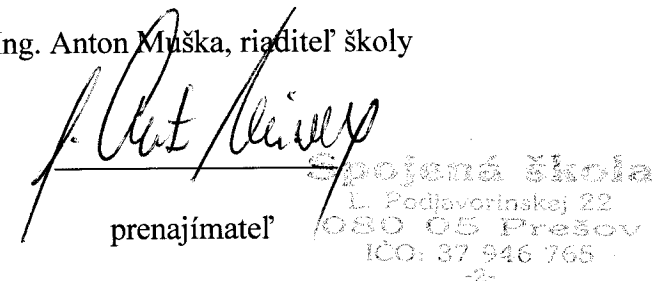 Ing. Anton Muška, riaditeľ školy
prenajímateľ
Spojená škola
Ľ. Podjavorinskej 22
080 05 Prešov
IČO: 37 946 765
-2-